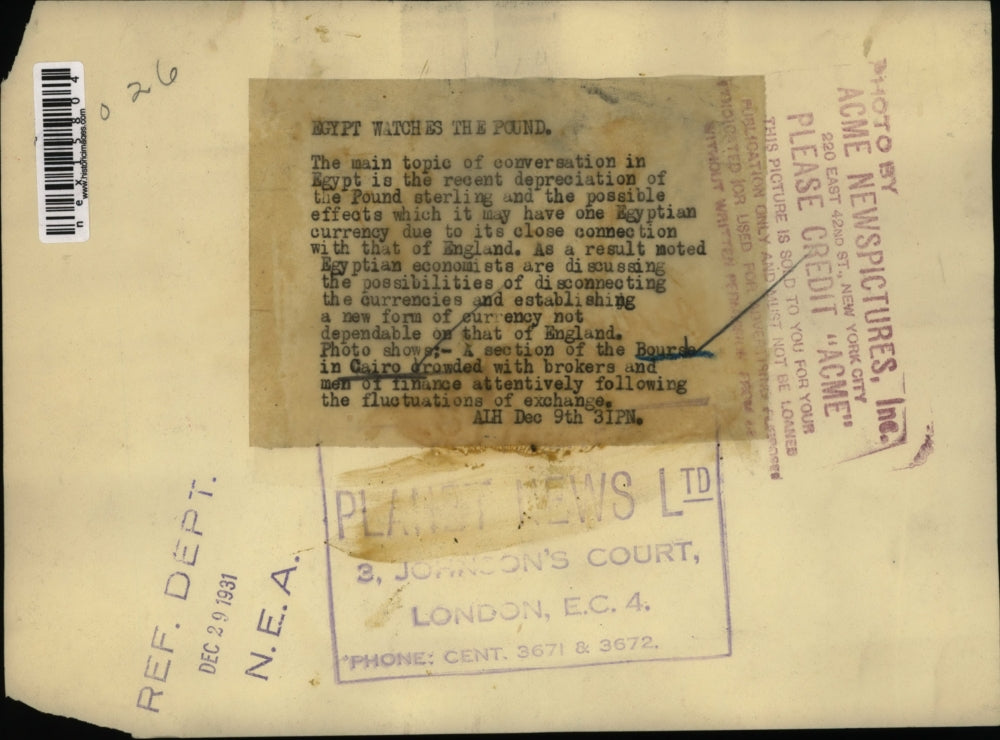 EGYPT WATCHES THE POUND.
The main topic of conversation in
Egypt is the recent depreciation of
the Pound sterling and the possible
effects which it may have one Egyptian
currency due to its close connection
with that of England. As a result moted
Egyptian economists are discussing
the possibilities of disconnecting
the currencies and establishing
a new form of currency not
dependable on that of England.
Photo shows:- A section of the Bourse
in Cairo crowded with brokers and
men of finance attentively following
the fluctuations of exchange.
ALH Dec 9th 31PN.
PLANET NEWS LTD
3, JOHNSON'S COURT,
LONDON, E.C. 4.
'PHONE: CENT. 3671 & 3672.
REF. DEPT.
DEC 29 1931
N. E. A.
PHOTO BY
ACME NEWSPICTURES, Inc.
220 EAST 42ND ST., NEW YORK CITY
PLEASE CREDIT "ACME"
THIS PICTURE IS SOLD TO YOU FOR YOUR
PUBLICATION ONLY AND MUST NOT BE LOANED
SYNDICATED OR USED FOR ADVERTISING PURPOSES
WITHOUT WRITTEN PERMISSION FROM
026
www.historicimages.com
nex15804